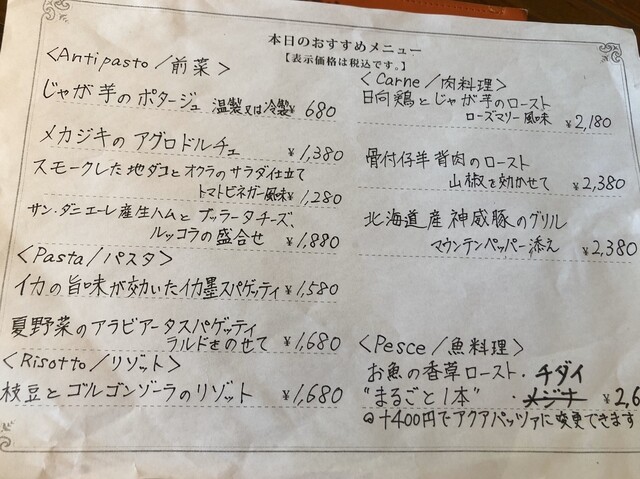 本日のおすすめメニュー
【表示価格は税込です。】
<Antipasto/前菜>
じゃが芋のポタージュ 温製又は冷製 ¥680
メカジキのアグロドルチェ ¥1,380
スモークした地ダコとオクラのサラダ仕立て
トマトビネガー風味 ¥1,280
サン・ダニエーレ産生ハムとブッラータチーズ、
ルッコラの盛合せ ¥1,880
<Pasta/パスタ>
イカの旨味が効いたイカ墨スパゲッティ ¥1,580
夏野菜のアラビアータスパゲッティ
ラルドをのせて ¥1,680
<Risotto/リゾット>
枝豆とゴルゴンゾーラのリゾット ¥1,680
<Carne/肉料理>
日向鶏とじゃが芋のロースト
ローズマリー風味 ¥2,180
骨付仔羊背肉のロースト
山椒を効かせて ¥2,380
北海道産神威豚のグリル
マウンテンペッパー添え ¥2,380
<Pesce/魚料理>
お魚の香草ロースト・チダイ
"まるごと1本" ・メジナ ¥2,6
+400円でアクアパッツァに変更できます